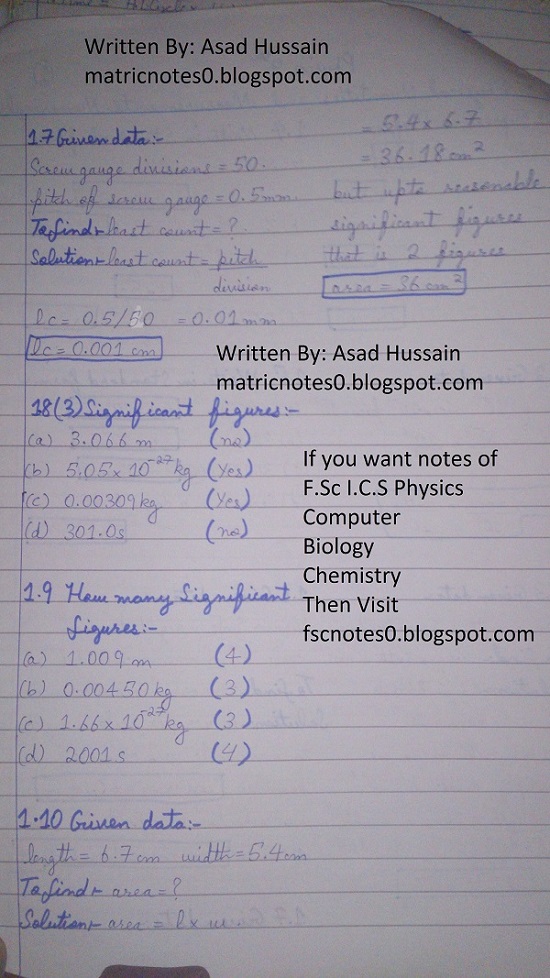 Written By: Asad Hussain
matricnotes0.blogspot.com
1.7 Given data:-
Screw gauge divisions = 50.
pitch of screw gauge = 0.5mm
To find:- least count = ?
Solution:- least count = pitch
division
lc = 0.5/50 = 0.01mm
lc = 0.001 cm
18(3) Significant figures:-
(a) 3.066 m (no)
(b) 5.05 x 10⁻²⁷ kg (Yes)
(c) 0.00309kg (Yes)
(d) 301.0s (no)
1.9 How many Significant
figures:-
(a) 1.009 m (4)
(b) 0.00450 kg (3)
(c) 1.66 x 10⁻²⁷ kg (3)
(d) 2001 s (4)
1.10 Given data:-
length = 6.7 cm width = 5.4cm
To find:- area = ?
Solution:- area = l x w
= 5.4 x 6.7
= 36.18 cm²
but upto reasonable
significant figures
that is 2 figures
area = 36 cm²
Written By: Asad Hussain
matricnotes0.blogspot.com
If you want notes of
F.Sc I.C.S Physics
Computer
Biology
Chemistry
Then Visit
fscnotes0.blogspot.com